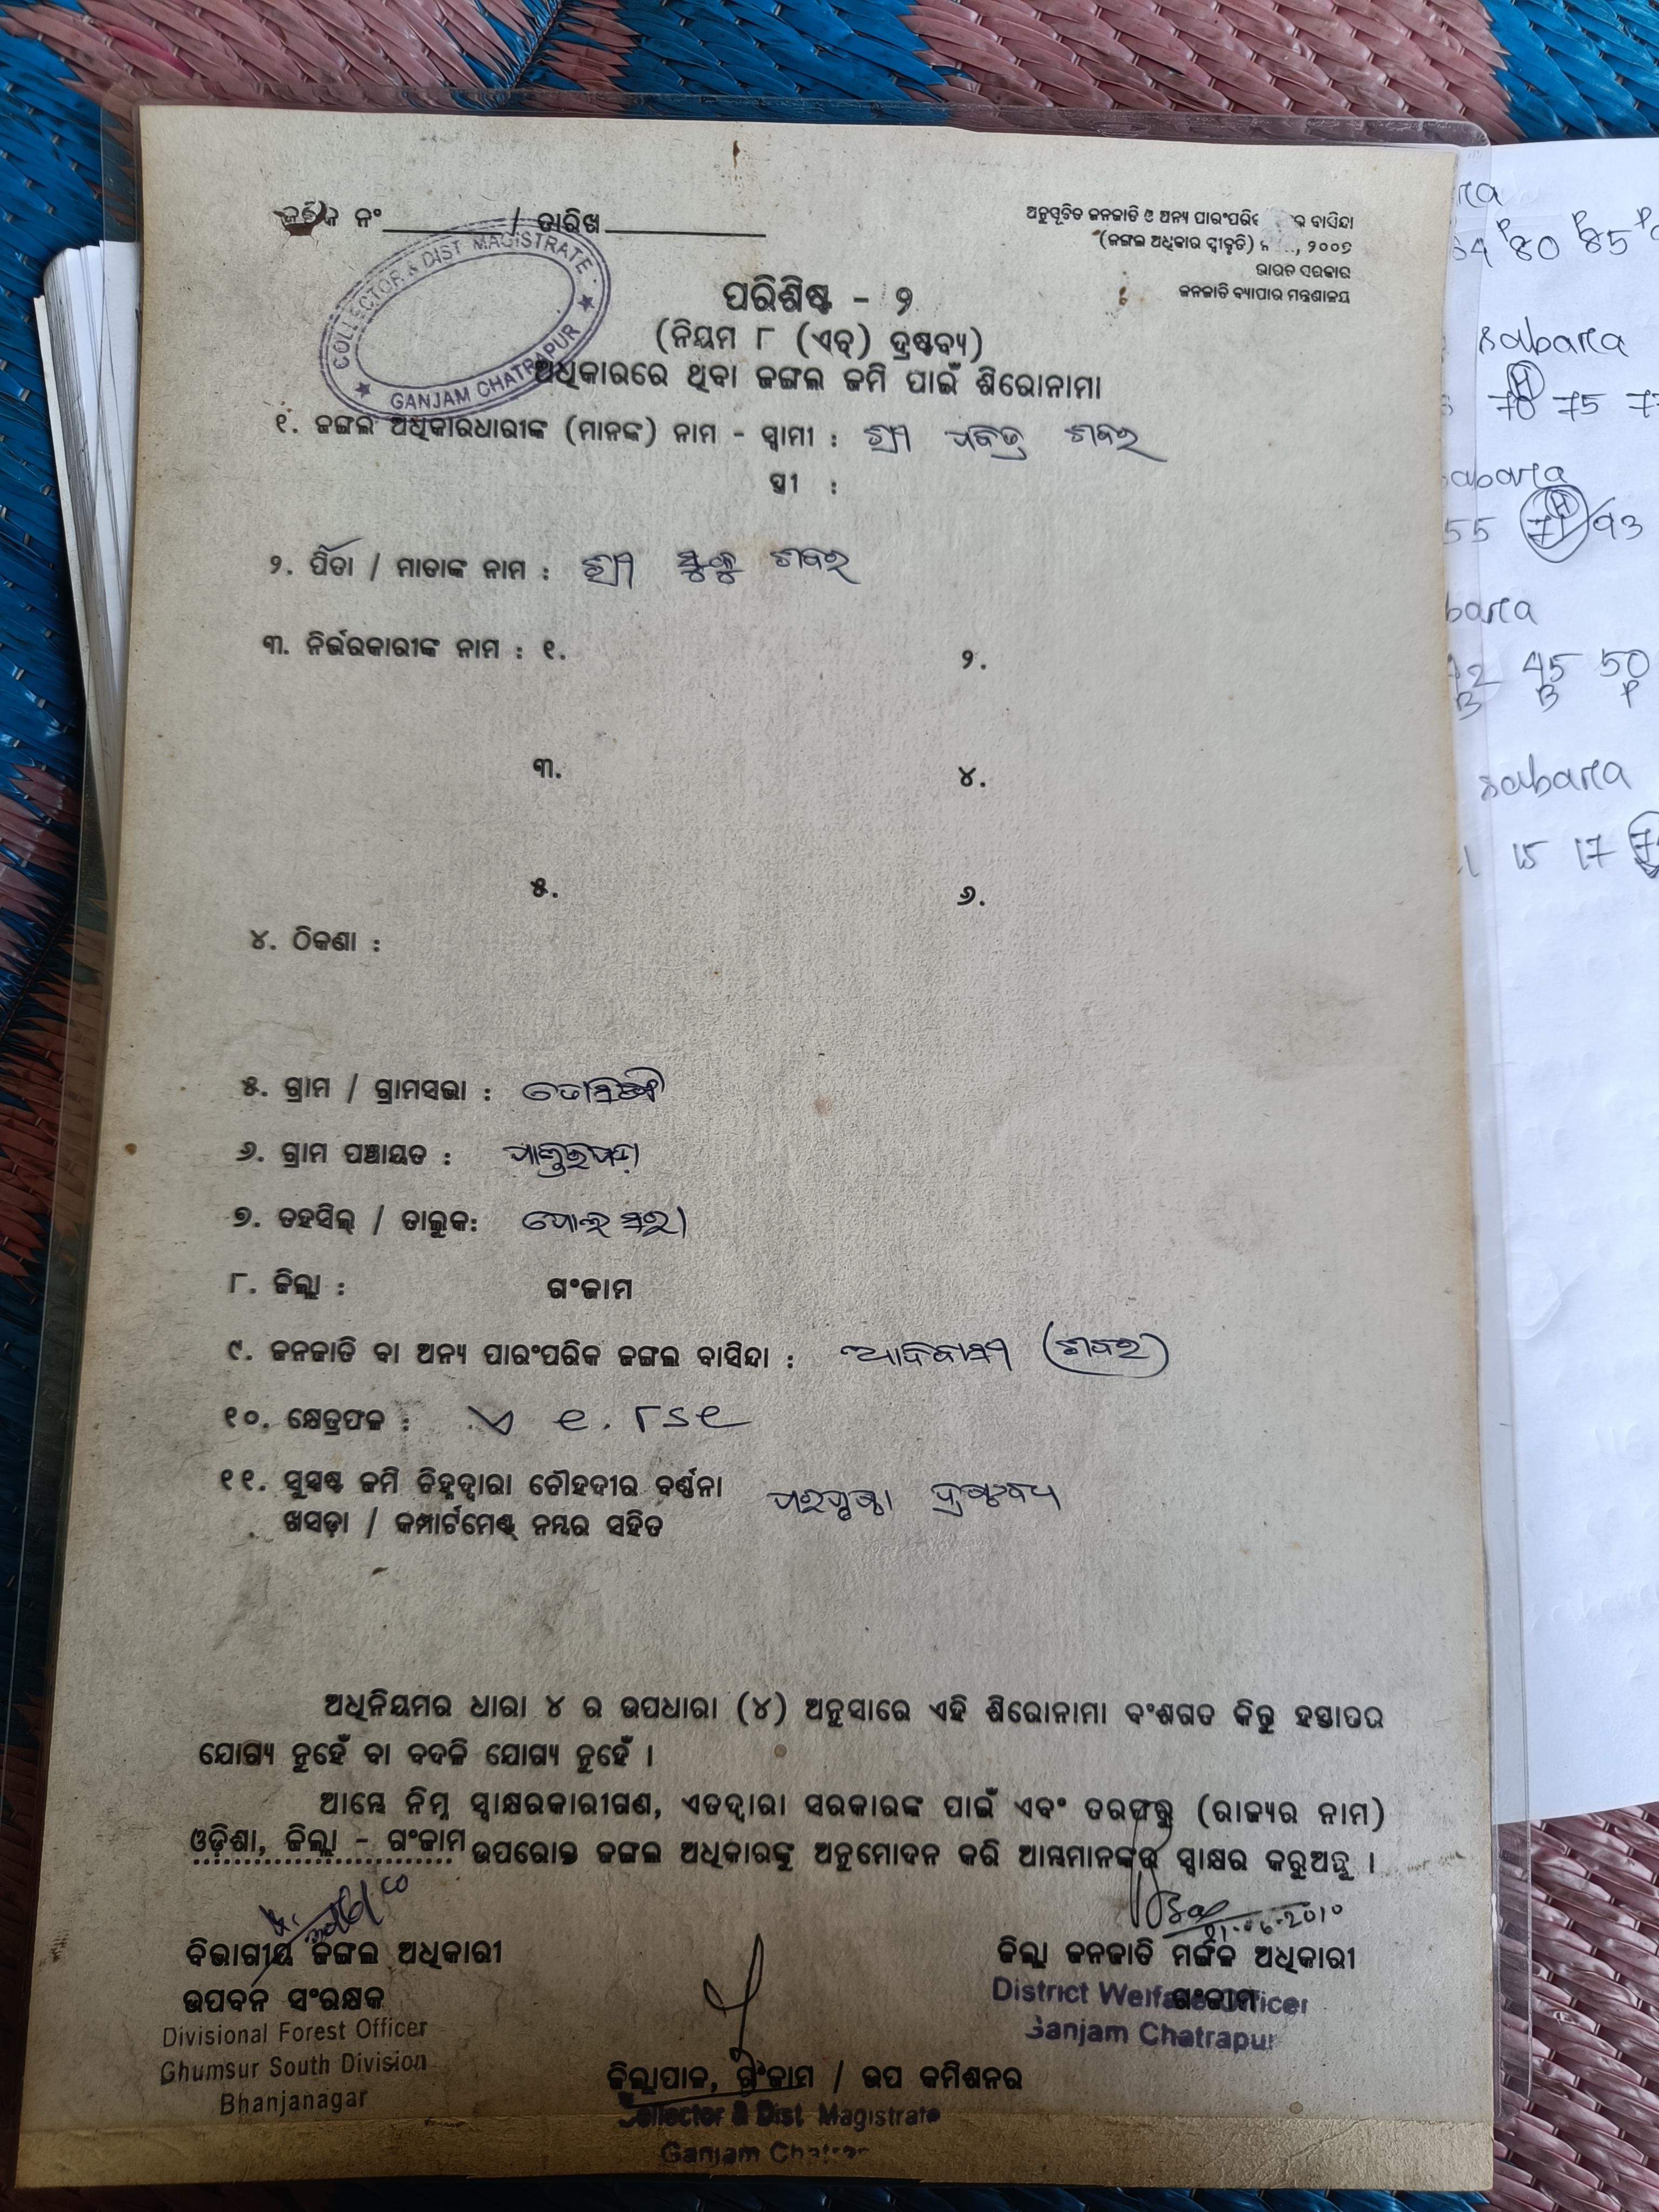 ଜମିକ ନଂ / ତାରିଖ
COLLECTOR & DIST MAGISTRATE
GANJAM CHATRAPUR
ଅନୁସୂଚିତ ଜନଜାତି ଓ ଅନ୍ୟ ପାରଂପରିକ ବାସିନ୍ଦା
(ଜଙ୍ଗଲ ଅଧିକାର ସ୍ୱୀକୃତି) ୨୦୦୭
ଭାରତ ସରକାର
ଜନଜାତି ବ୍ୟାପାର ମନ୍ତ୍ରଣାଳୟ
ପରିଶିଷ୍ଟ - ୨
(ନିୟମ ୮ (ଏଚ୍) ଦ୍ରଷ୍ଟବ୍ୟ)
ଅଧିକାରରେ ଥିବା ଜଙ୍ଗଲ ଜମି ପାଇଁ ଶିରୋନାମା
୧. ଜଙ୍ଗଲ ଅଧିକାରଧାରୀଙ୍କ (ମାନଙ୍କ) ନାମ - ସ୍ୱାମୀ : ଶ୍ରୀ ପବିତ୍ର ଶବର
ସ୍ତ୍ରୀ :
୨. ପିତା / ମାତାଙ୍କ ନାମ : ଶ୍ରୀ ସୁକୁ ଶବର
୩. ନିର୍ଭରକାରୀଙ୍କ ନାମ : ୧. ୨.
୩. ୪.
୫. ୬.
୪. ଠିକଣା :
୫. ଗ୍ରାମ / ଗ୍ରାମସଭା :
୬. ଗ୍ରାମ ପଞ୍ଚାୟତ :
୭. ତହସିଲ୍ / ତାଲୁକ: ପୋଲସରା
୮. ଜିଲ୍ଲା : ଗଂଜାମ
୯. ଜନଜାତି ବା ଅନ୍ୟ ପାରଂପରିକ ଜଙ୍ଗଲ ବାସିନ୍ଦା : ଆଦିବାସୀ (ଶବର)
୧୦. କ୍ଷେତ୍ରଫଳ : ଏ ୧.୮୫୧
୧୧. ସୁସ୍ପଷ୍ଟ ଜମି ଚିହ୍ନଦ୍ୱାରା ଚୌହଦୀର ବର୍ଣ୍ଣନା ପରପୃଷ୍ଠା ଦ୍ରଷ୍ଟବ୍ୟ
ଖସଡ଼ା / କମ୍ପାର୍ଟମେଣ୍ଟ୍ ନମ୍ବର ସହିତ
ଅଧିନିୟମର ଧାରା ୪ ର ଉପଧାରା (୪) ଅନୁସାରେ ଏହି ଶିରୋନାମା ବଂଶଗତ କିନ୍ତୁ ହସ୍ତାନ୍ତର
ଯୋଗ୍ୟ ନୁହେଁ ବା ବଦଳି ଯୋଗ୍ୟ ନୁହେଁ ।
ଆମ୍ଭେ ନିମ୍ନ ସ୍ୱାକ୍ଷରକାରୀଗଣ, ଏତଦ୍ୱାରା ସରକାରଙ୍କ ପାଇଁ ଏବଂ ତରଫରୁ (ରାଜ୍ୟର ନାମ)
ଓଡ଼ିଶା, ଜିଲ୍ଲା - ଗଂଜାମ ଉପରୋକ୍ତ ଜଙ୍ଗଲ ଅଧିକାରଙ୍କୁ ଅନୁମୋଦନ କରି ଆମ୍ଭମାନଙ୍କର ସ୍ୱାକ୍ଷର କରୁଅଛୁ ।
ବିଭାଗୀୟ ଜଙ୍ଗଲ ଅଧିକାରୀ
ଉପବନ ସଂରକ୍ଷକ
Divisional Forest Officer
Ghumsur South Division
Bhanjanagar
ଜିଲ୍ଲା ଜନଜାତି ମଙ୍ଗଳ ଅଧିକାରୀ
ଗଂଜାମ
District Welfare Officer
Ganjam Chatrapur
ଜିଲ୍ଲାପାଳ, ଗଂଜାମ / ଉପ କମିଶନର
Collector & Dist Magistrate
Ganjam
80 85
sabara
70 75
55 71 93
45 50
B B P
sabara
15 17